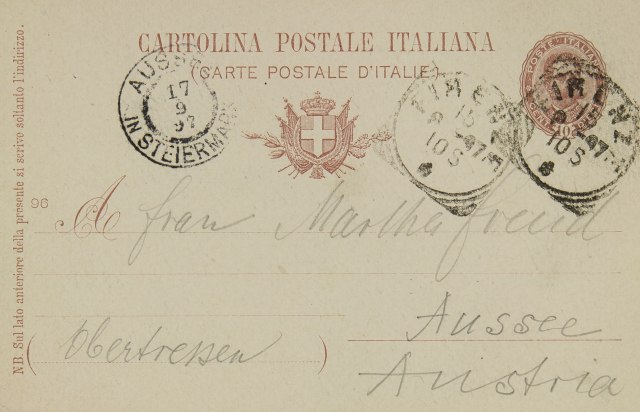 CARTOLINA POSTALE ITALIANA
(CARTE POSTALE D'ITALIE)
AUSSEE
17
9
97
IN STEIERMARK
FIRENZE
15
9-97
10 S
POSTE ITALIANE
FIRENZE
97
10 S
96
A frau Martha freud
Aussee
(Obertressen)
Austria
NB. Sul lato anteriore della presente si scrive soltanto l'indirizzo.